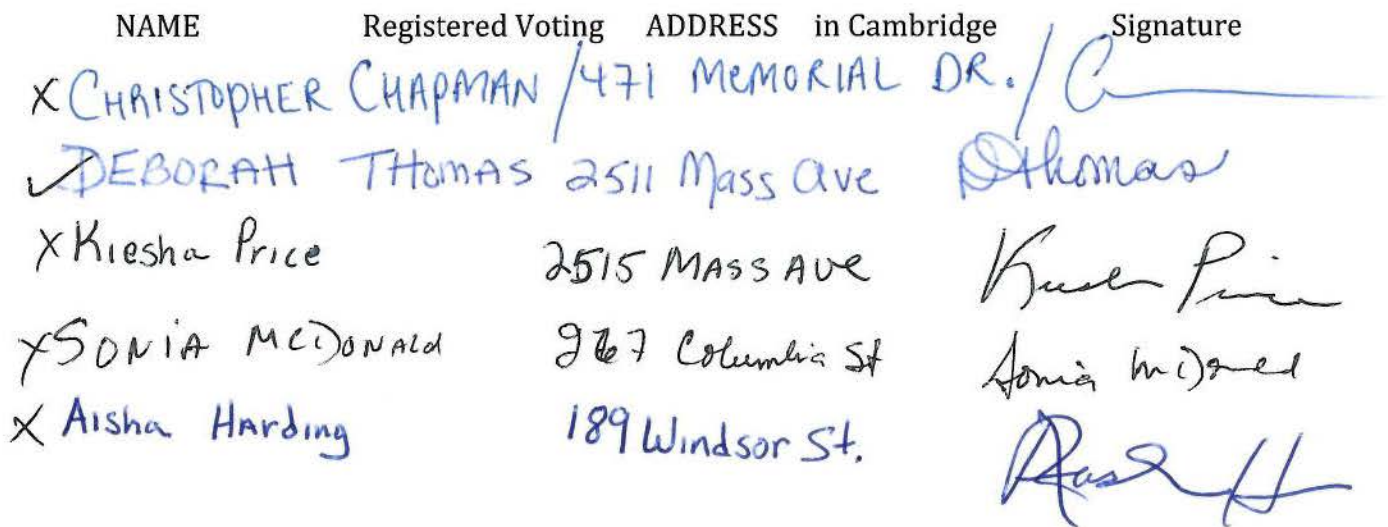 NAME Registered Voting ADDRESS in Cambridge Signature
X CHRISTOPHER CHAPMAN / 471 MEMORIAL DR. /
✓ DEBORAH THOMAS 2511 Mass Ave DThomas
X Kiesha Price 2515 MASS AVE
X SONIA MCDONALd Columbia St Sonia McDonald
X AIsha HArding 189 Windsor St.